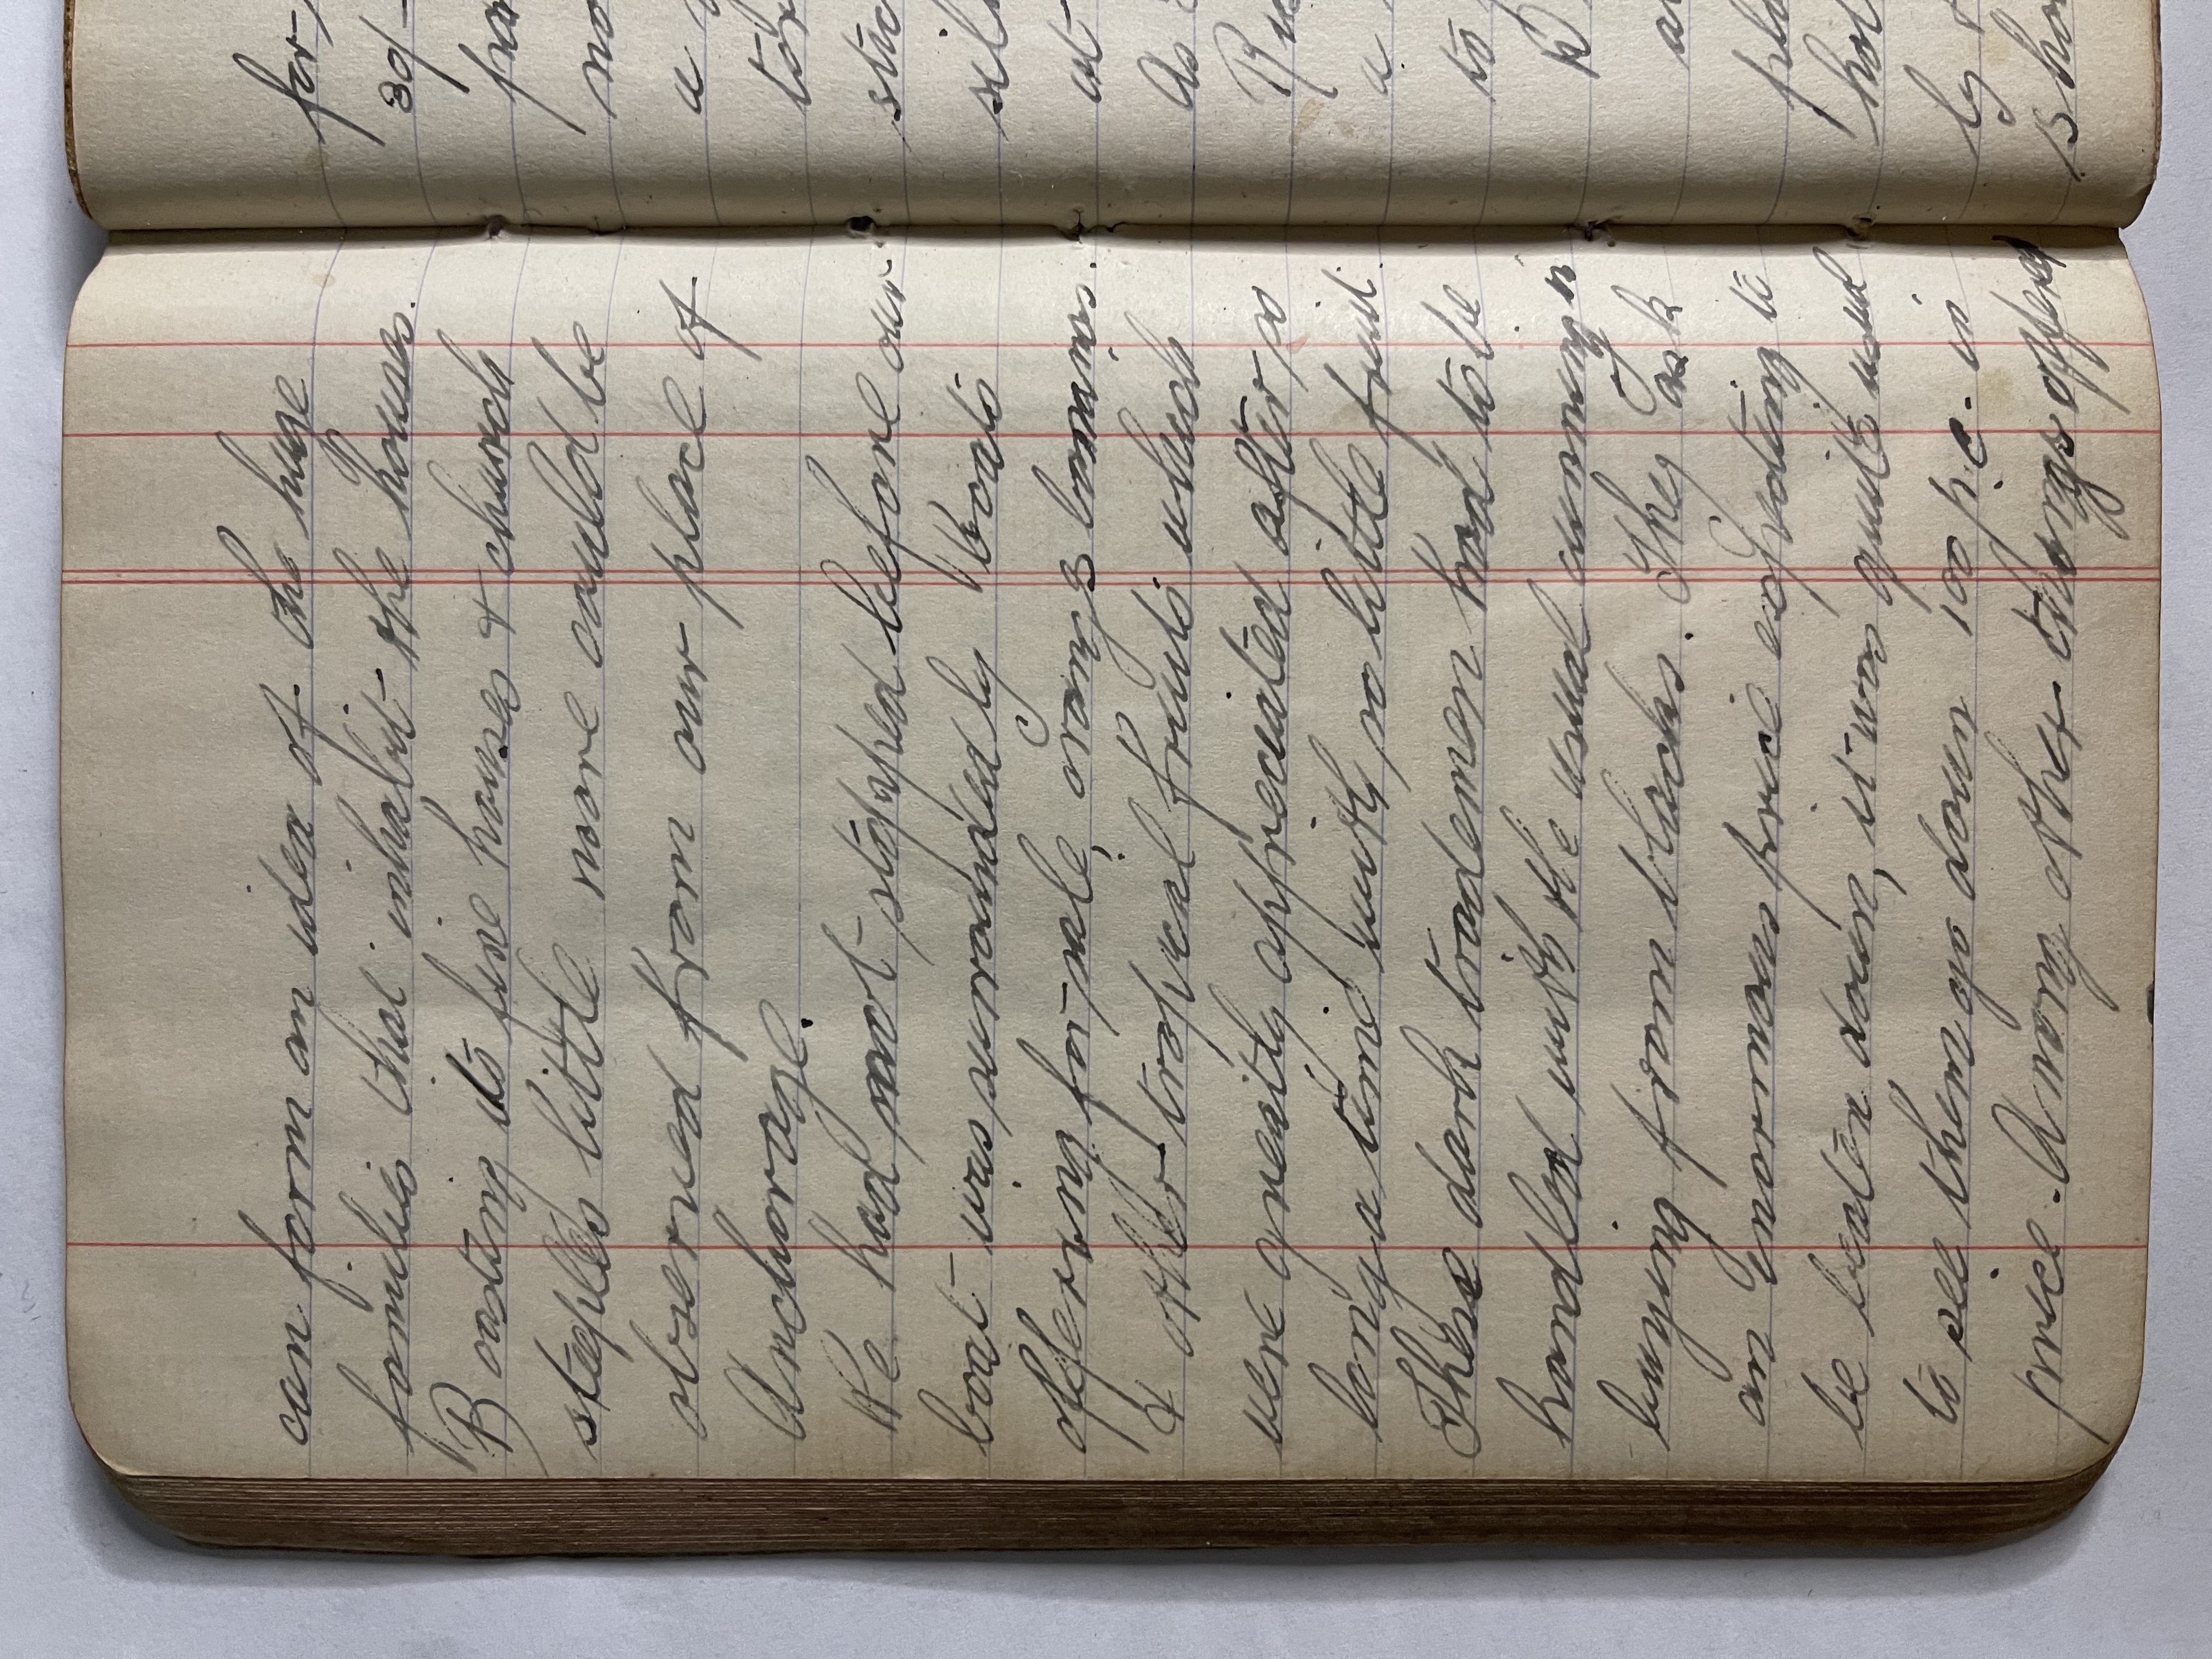 can form an idea of the huge
families that inhabit the houses.
Boasting its fine houses & church
steeples little more could be
observed from our place of
Anchorage.
We had not stopped before our
boat was surrounded by boats
offering for sale, orang's banans.
& other tropical fruits which
were greatly appreciated after so
long a time with so little fruit.
These dark tradesmen had to be
handled with the usual cunning in
buying from blacks. They ask
an enormous price expecting to
be beaten down, it was quite usual
to see them go down 100 p.c. in
price. Among other things offered
for
30/-
no
a
at
As
a
to
by